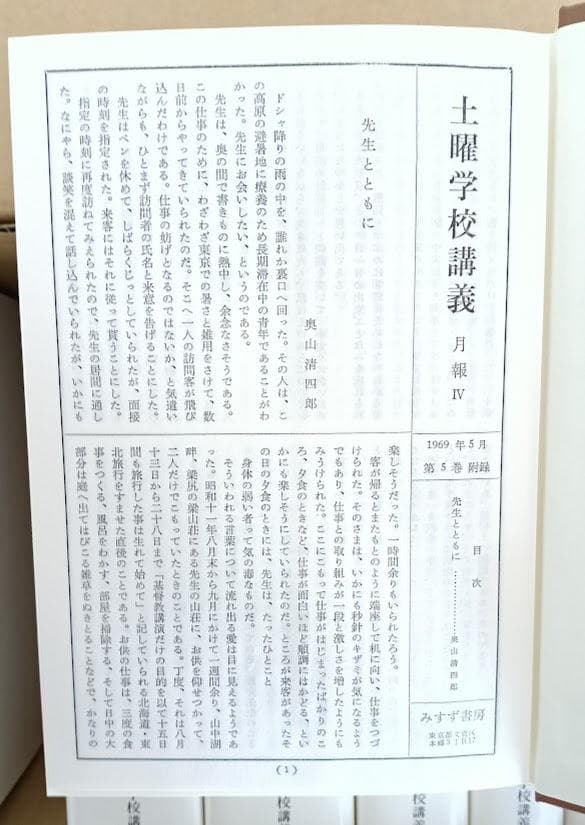 土曜学校講義
月報Ⅳ
1969年5月
第5巻 附録
目次
先生とともに…………………奥山清四郎
みすず書房
東京都文京区
本郷3-1
先生とともに
奥山清四郎
ドシャ降りの雨の中を、誰れか裏口へ回った。その人は、こ
の高原の避暑地に療養のため長期滞在中の青年であることがわ
かった。先生にお会いしたい、というのである。
先生は、奥の間で書きものに熱中し、余念なさそうである。
この仕事のために、わざわざ東京での暑さと雑用をさけて、数
日前からやってきていられたのだ。そこへ一人の訪問客が飛び
込んだわけである。仕事の妨げとなるのではないか、と気遣い
ながらも、ひとまず訪問者の氏名と来意を告げることにした。
先生はペンを休めて、しばらくじっとしていられたが、面接
の時刻を指定された。来客にはそれに従って貰うことにした。
指定の時刻に再度訪ねてみえられたので、先生の居間に通し
た。なにやら、談笑を混えて話し込んでいられたが、いかにも
楽しそうだった。一時間余りもいられたろう。
客が帰るとまたもとのように端座して机に向い、仕事をつづ
けられた。そのさまは、いかにも秒針のキザミが気になるよう
でもあり、仕事との取り組みが一段と激しさを増したようにも
みうけられた。ここにこもって仕事がはじまったばかりのこ
ろ、夕食のときなど、仕事が面白いほど順調にはかどる、とい
かにも楽しそうにしていられたのだ。ところが来客があったそ
の日の夕食のときには、先生は、たったひとこと
身体の弱い者って気の毒なものだ。
そういわれる言葉について流れ出る愛は目に見えるようであ
った。昭和十一年八月末から九月にかけて一週間余り、山中湖
畔、梁尻の梁山荘にある先生の山荘に、お供を仰せつかって、
二人だけでこもっていたときのことである。丁度、それは八月
十三日から二十八日まで「基督教講演だけの目的を以て十五日
間も旅行した事は生れて始めて」と記していられる北海道・東
北旅行をすませた直後のことである。お供の仕事は、三度の食
事をつくる、風呂をわかす、部屋を掃除する、そして日中の大
部分は庭へ出てはびこる雑草をぬきとることなどで、かなりの
(1)
校講義
学校講
学校講
学校講義
学校講